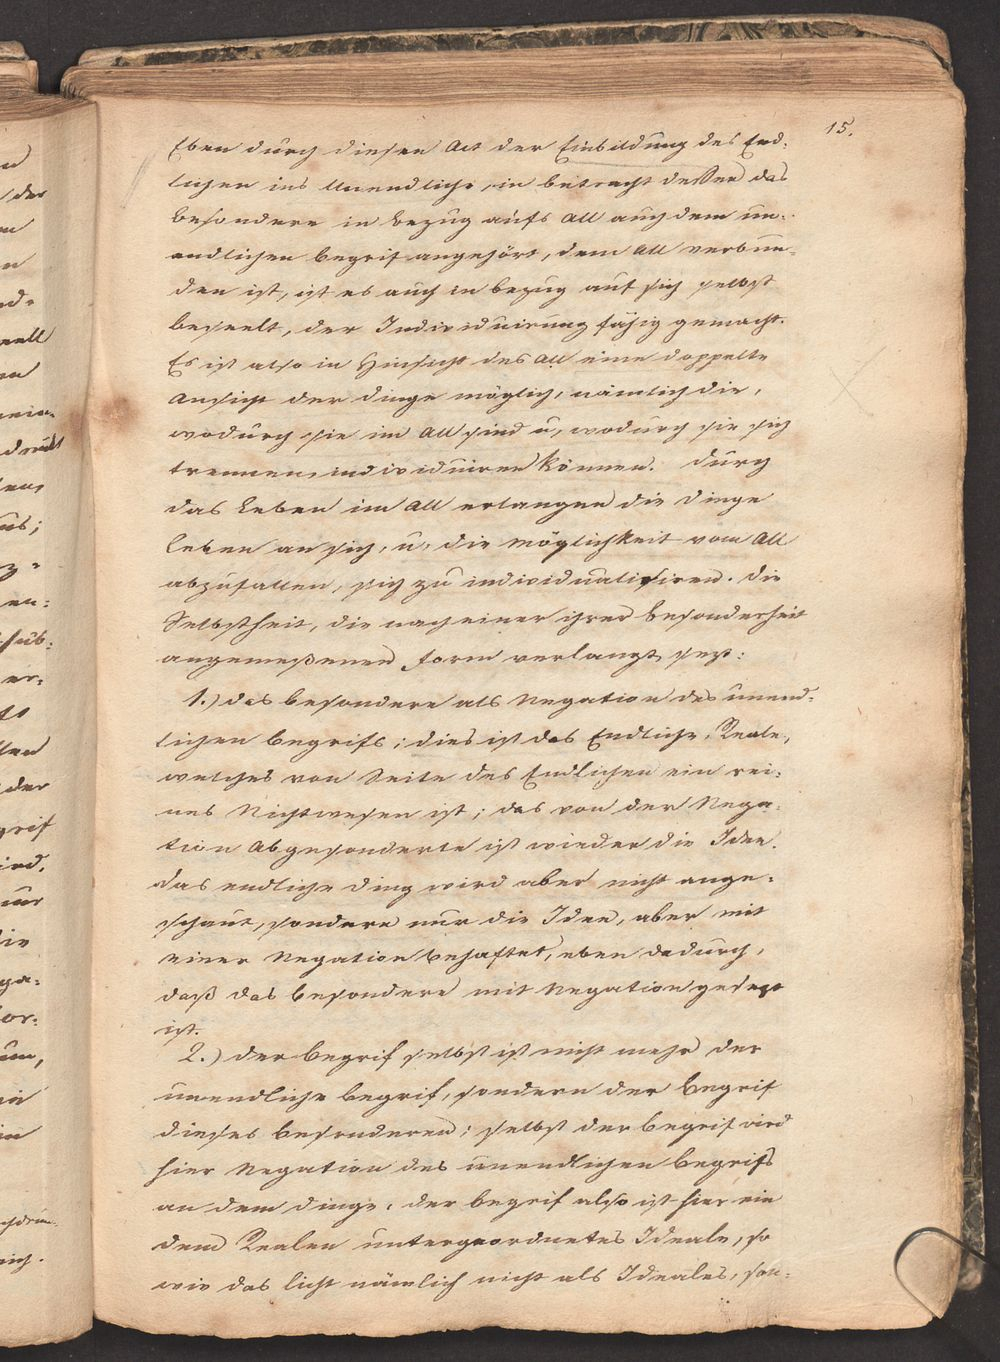 15.
Eben durch diesen Act der Einbildung des End-
lichen ins Unendliche, in betracht deßen das
besondere in bezug aufs All auch dem un-
endlichen begrif angehört, dem All verbun-
den ist, ist es auch in bezug auf sich selbst
beseelt, der Individuirung fähig gemacht.
Es ist also in Hinsicht des All eine doppelte
Ansicht der dinge möglich, nämlich die,
wodurch sie im All sind u, wodurch sie sich
trennen, individuiren können. Durch
das Leben im All erlangen die dinge
leben an sich, u, die möglichkeit vom All
abzufallen, sich zu individualisiren. Die
Selbstheit, die nach einer ihrer besonderheit
angemeßenen form verlangt, sezt:
1.) das besondere als Negation des unend-
lichen begrifs; dies ist das Endliche, Reale,
welches von Seite des Endlichen ein rei-
nes Nichtwesen ist; das von der Nega-
tion abgesonderte ist wieder die Idee.
das endliche ding wird aber nicht ange-
schaut, sondern nur die Idee, aber mit
einer Negation behaftet, eben dadurch,
daß das besondere mit Negation gesezt
ist.
2.) der begrif selbst ist nicht mehr der
unendliche begrif, sondern der begrif
dieses besonderen; selbst der begrif wird
hier Negation des unendlichen begrifs
an dem dinge, der begrif also ist hier ein
dem Realen untergeordnetes Ideale, so
wie das licht nämlich nicht als Ideales, son-